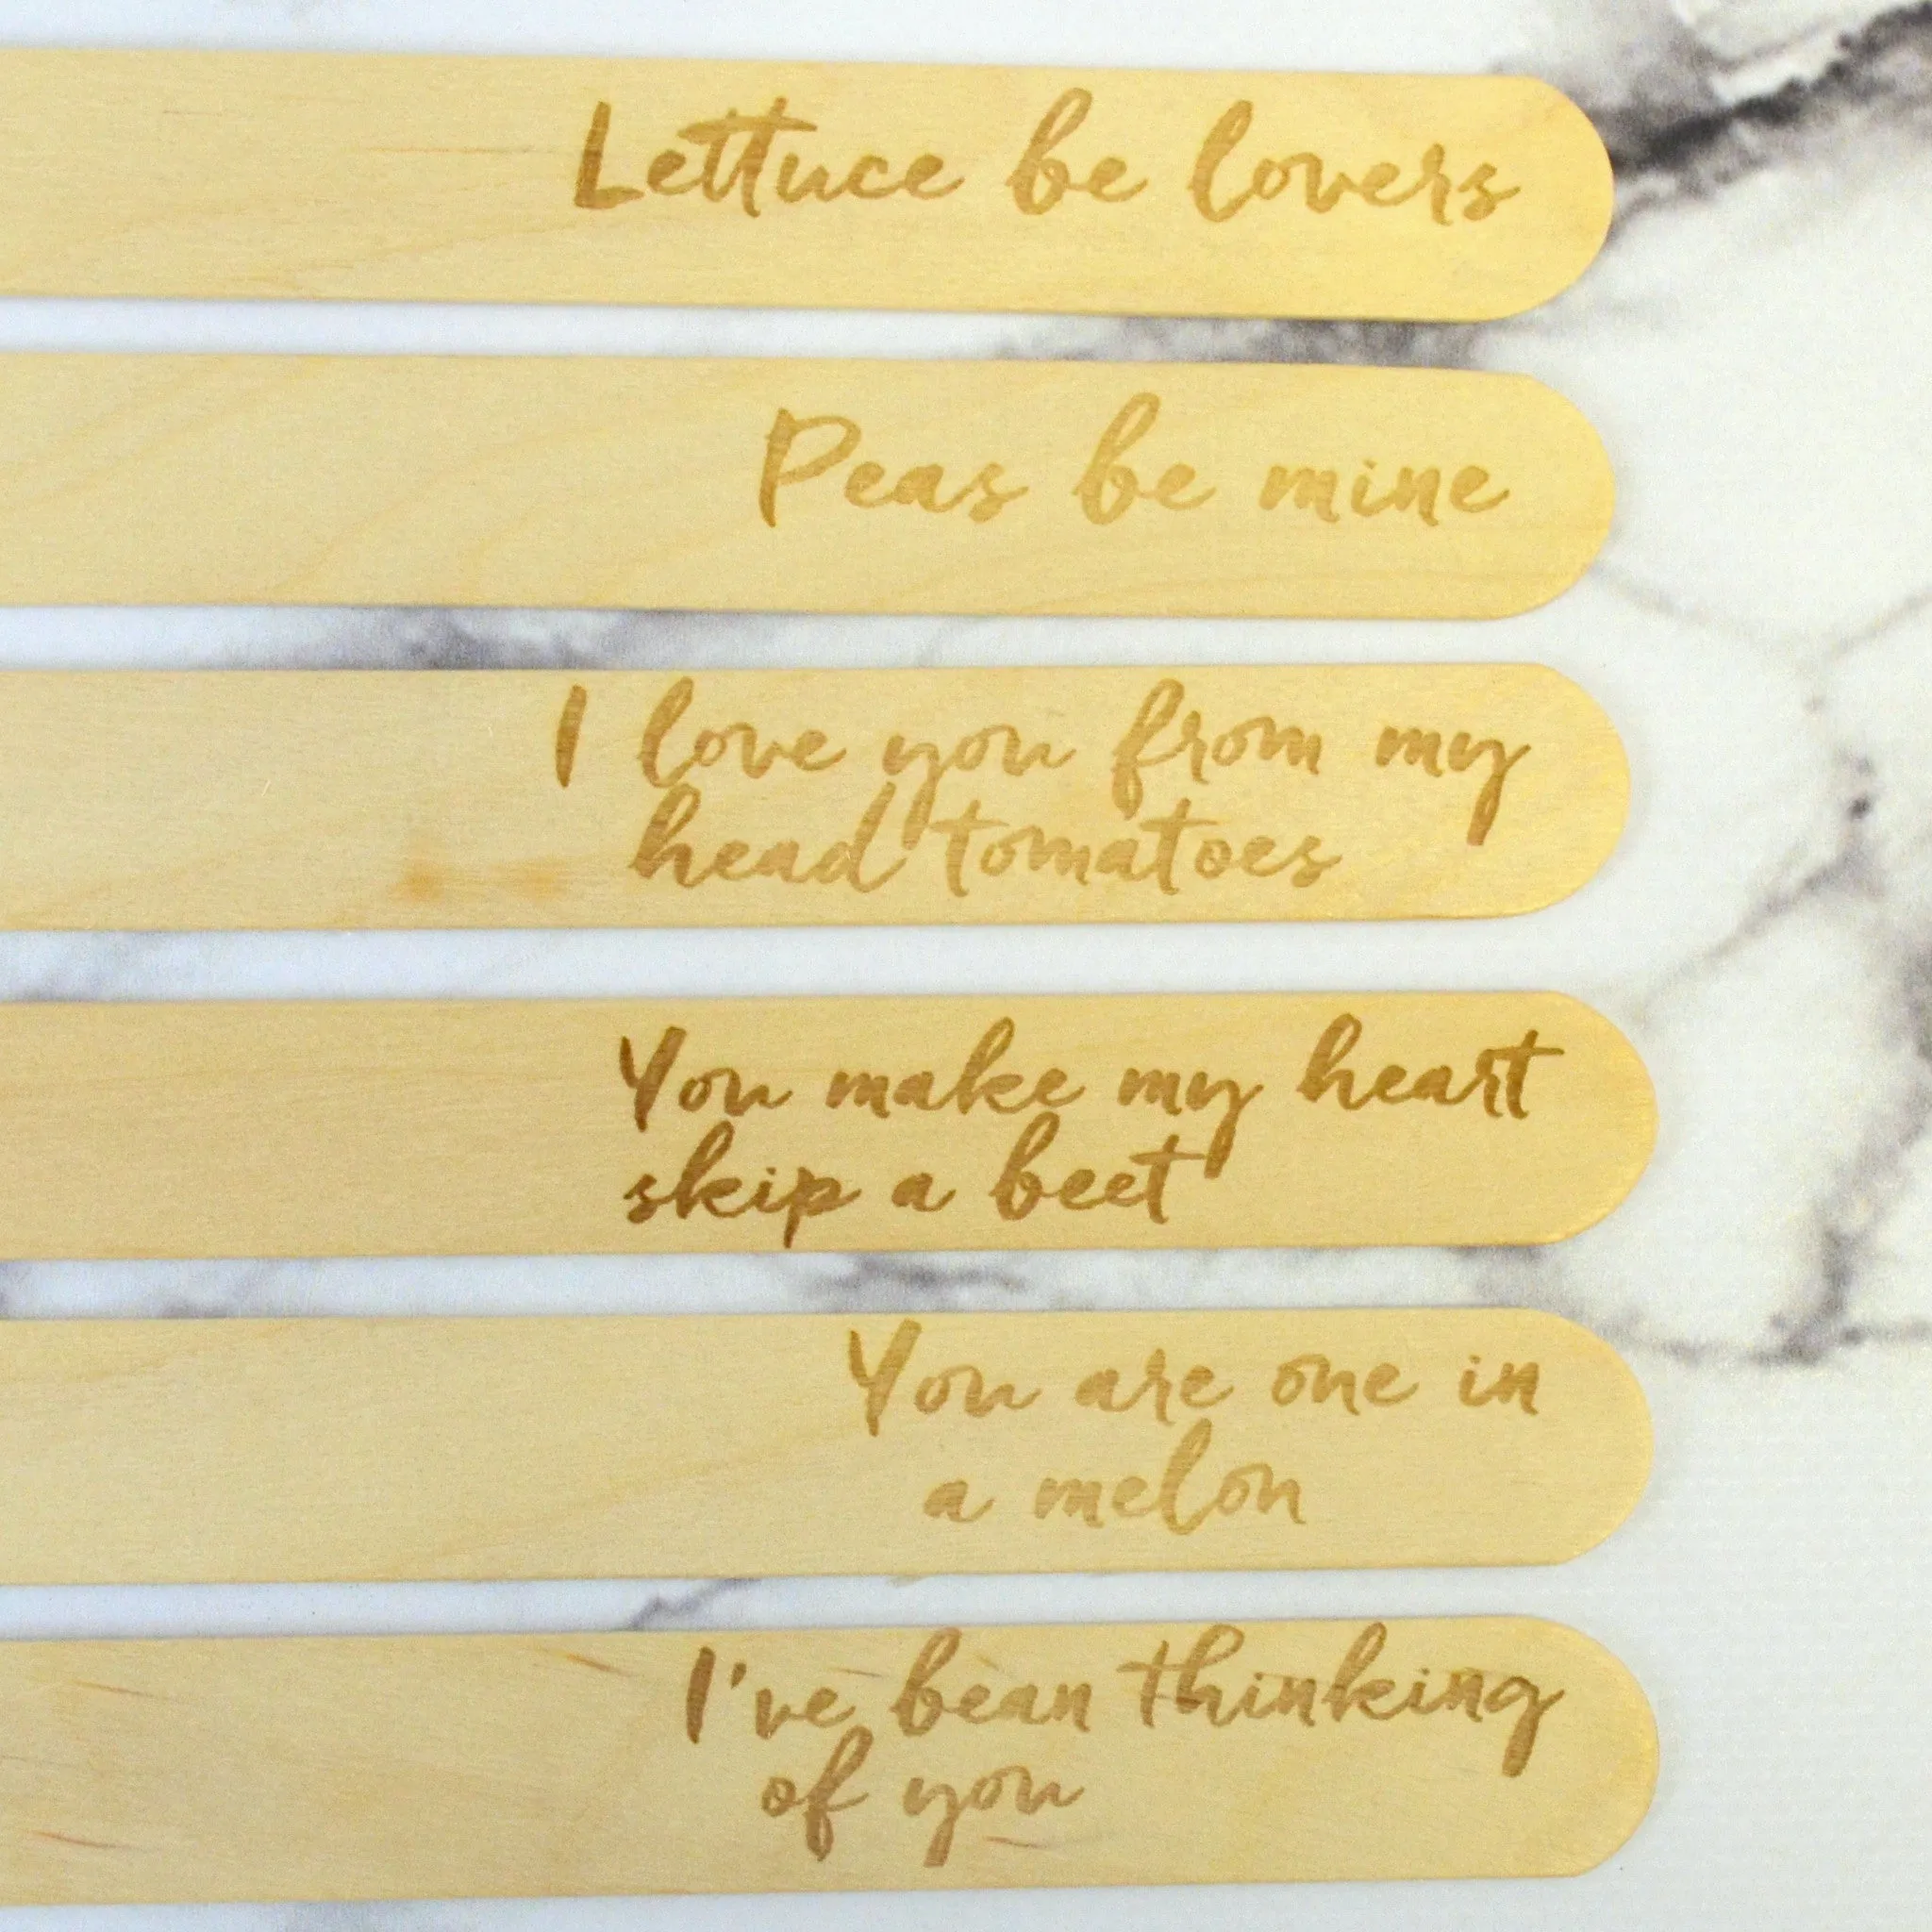 Lettuce be lovers
Peas be mine
I love you from my
head tomatoes
You make my heart
skip a beet
You are one in
a melon
I've bean thinking
of you